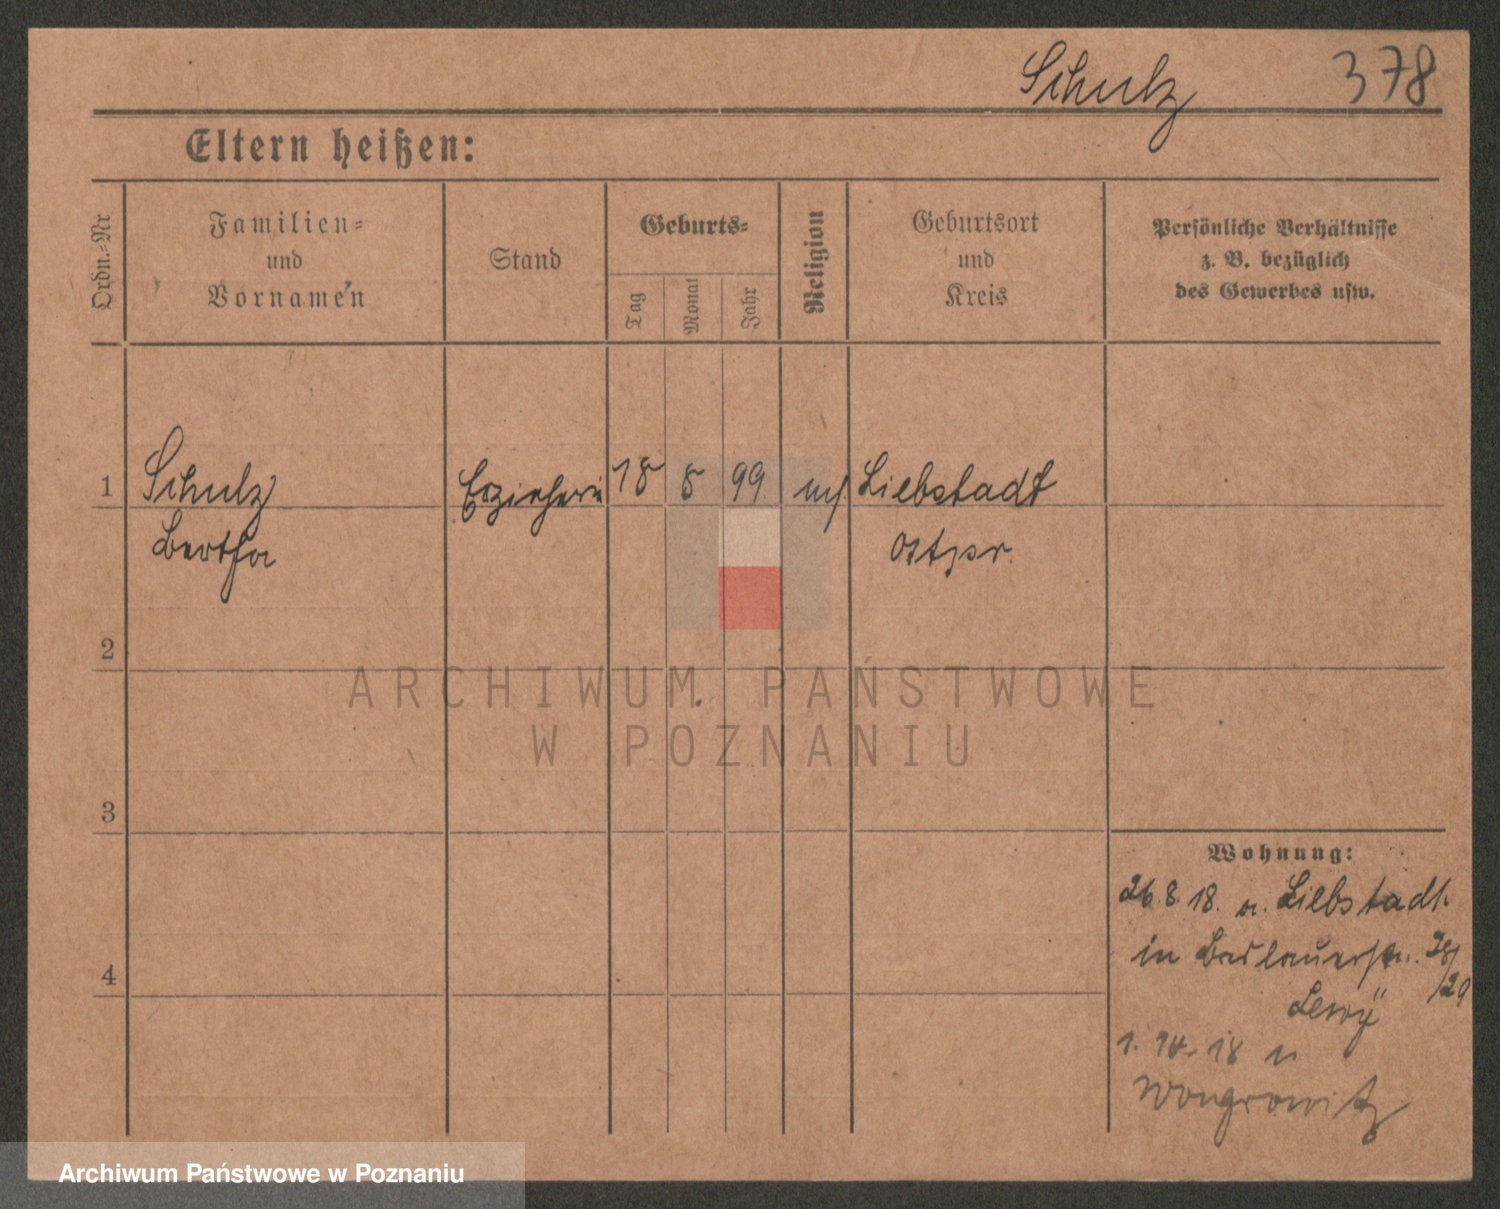 Schulz 378
Eltern heißen:
Ordn.-Nr
Familien-
und
Vornamen
Stand
Geburts-
Tag
Monat
Jahr
Religion
Geburtsort
und
Kreis
Persönliche Verhältnisse
z. B. bezüglich
des Gewerbes usw.
1 Schulz Erzieherin 18 8 99 Liebstadt
Bertha Ostpr.
2
ARCHIWUM PAŃSTWOWE
W POZNANIU
3
Wohnung:
26.8.18. a. Liebstadt
4
in Breslauerstr. 28
/29
Lewy
1. 10. 18 n
Wongrowitz
Archiwum Państwowe w Poznaniu